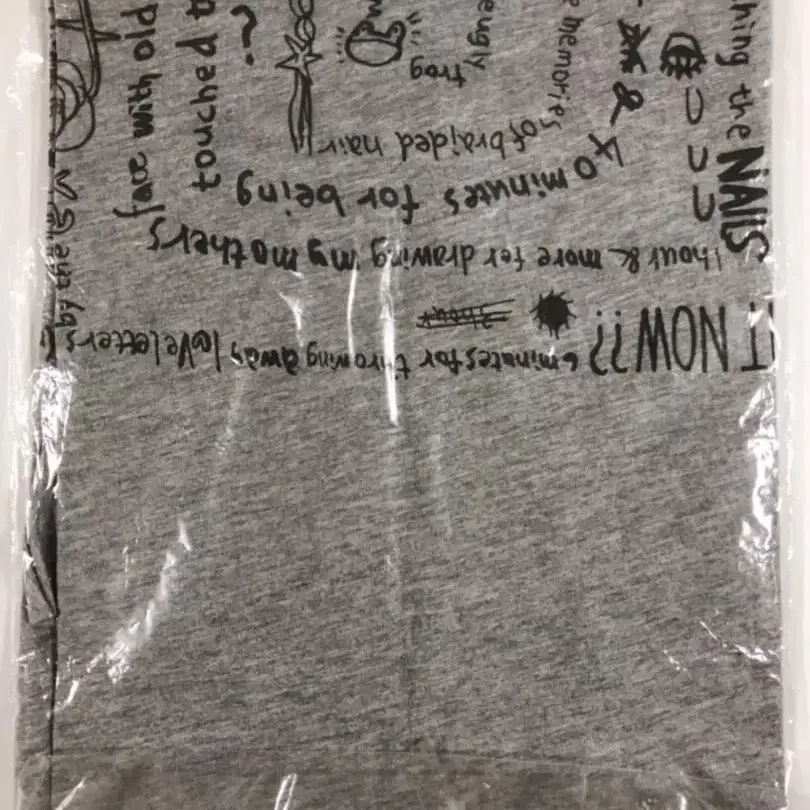 IT NOW??
6 minutes for throwing away love letters
1 hour & more for drawing my mothers
40 minutes for being
of braided hair
memories
ugly
frog
&
hing the NAILS
touched
fave with old
?